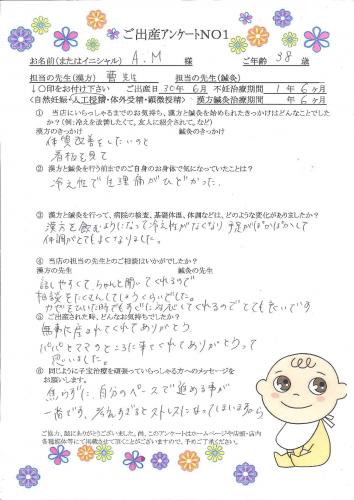 ご出産アンケートNO1
お名前(またはイニシャル) A.M 様 ご年齢 38 歳
担当の先生(漢方) 曹先生 担当の先生(鍼灸)
↓○印をお付け下さい ご出産日 30年 6月 不妊治療期間 1年 6ヶ月
<自然妊娠・人工授精・体外受精・顕微授精> 漢方鍼灸治療期間 年 6ヶ月
① 当店にいらっしゃるまでのお気持ち、漢方と鍼灸を始められたきっかけはどんなことでしたか?(例:冷えを改善したくて、友人に紹介されて、など)
漢方のきっかけ 鍼灸のきっかけ
体質改善をしたいのと
看板を見て
② 漢方と鍼灸治療を行う前までのご自身のお身体で気になっていたことは?
冷え性で生理痛がひどかった.
③ 漢方と鍼灸を行って、病院の検査、基礎体温、体調などは、どのような変化がありましたか?
漢方を飲むようになって冷え性がなくなり 手足がぽかぽかして
体調がとてもよくなりました。
④ 当店の担当の先生とのご相談はいかがでしたか?
漢方の先生 鍼灸の先生
話しやすくてちゃんと聞いてくれるので
相談をたくさんしてしまうくらいでした。
カゼをひいた時でもすぐに対応してくれるので とても良いです
⑤ ご出産された時、どんなお気持ちでしたか?
無事に産まれてくれてありがとう
パパとママのところに来てくれてありがとうって
思いました。
⑥ 同じように子宝治療を頑張っていらっしゃる方へのメッセージを
お願いします。
焦らずに、自分のペースで進める事が
一番です、考えすぎるとストレスになってしまいますから
ご協力、誠にありがとうございました。尚、このアンケートはホームページや店頭・店内
各種媒体等にて掲載させて頂くことがございますので、予めご了承ください。